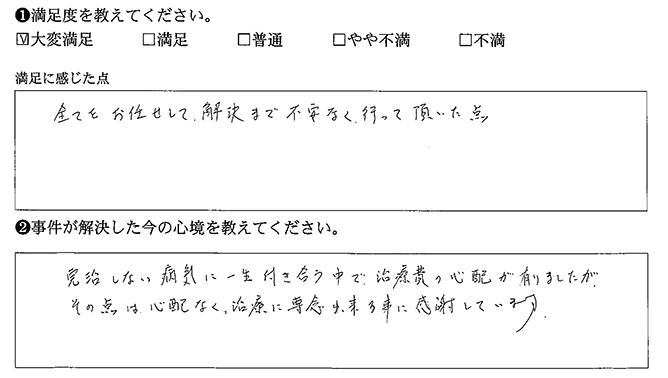 ❶満足度を教えてください。
☑大変満足 □満足 □普通 □やや不満 □不満
満足に感じた点
全てを お任せして、解決まで 不安なく、行って 頂いた点
❷事件が解決した今の心境を教えてください。
完治しない 病気に 一生 付き合う中で、治療費の心配が有りましたが
その点は、心配なく、治療に専念出来る事に感謝しています。